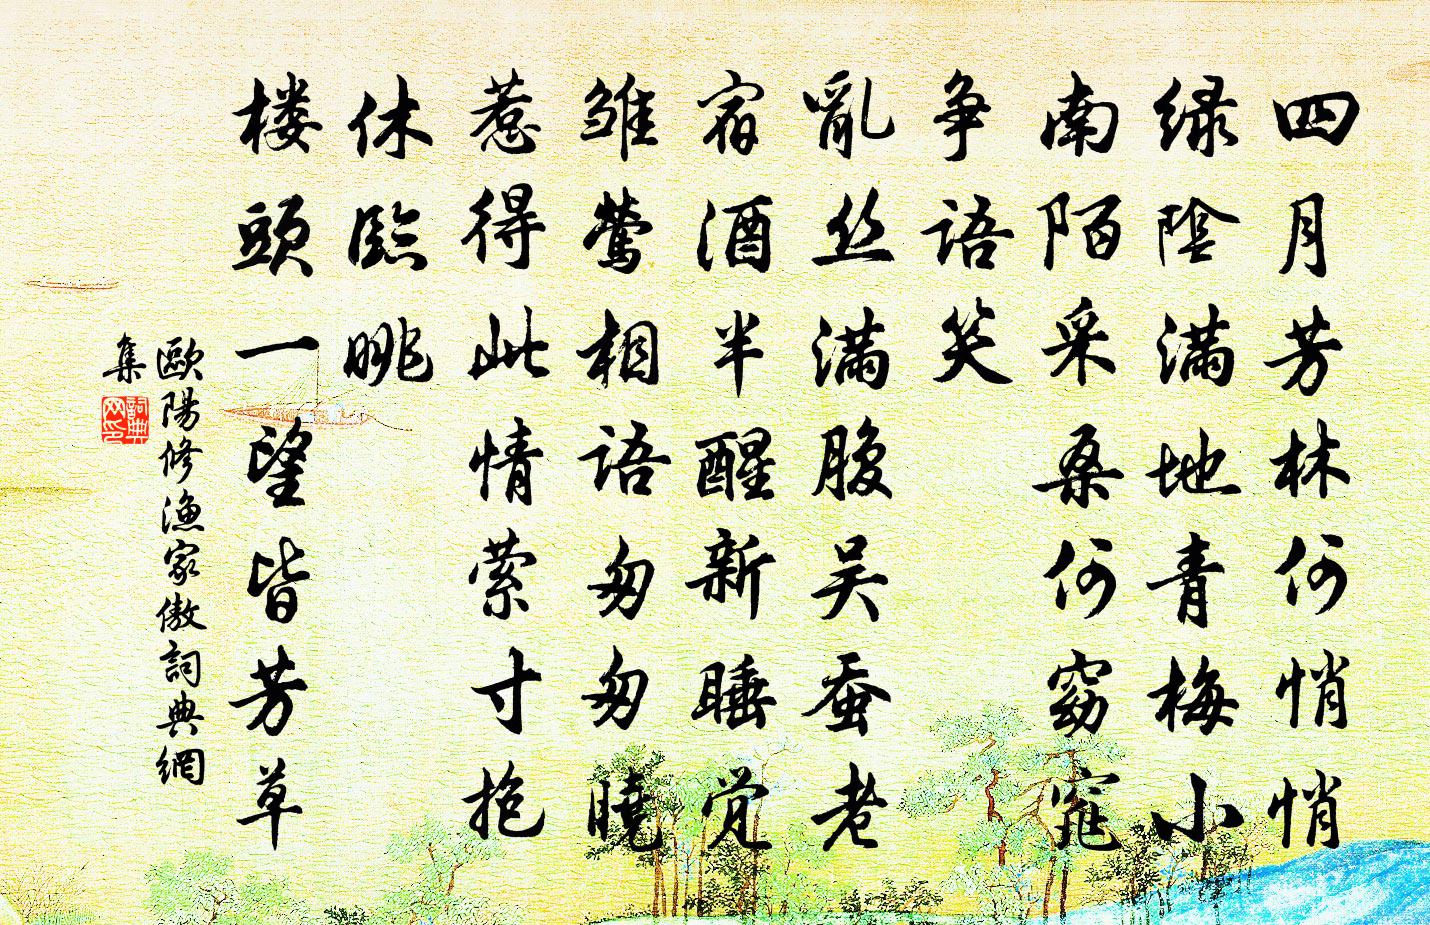 四月芳林何悄悄
绿陰满地青梅小
南陌采桑何窈窕
争语笑
亂丝满腹吴蚕老
宿酒半醒新睡觉
雏莺相语匆匆曉
惹得此情萦寸抱
休臨眺
楼頭一望皆芳草
歐陽修渔家傲詞典網
集
詞典网印